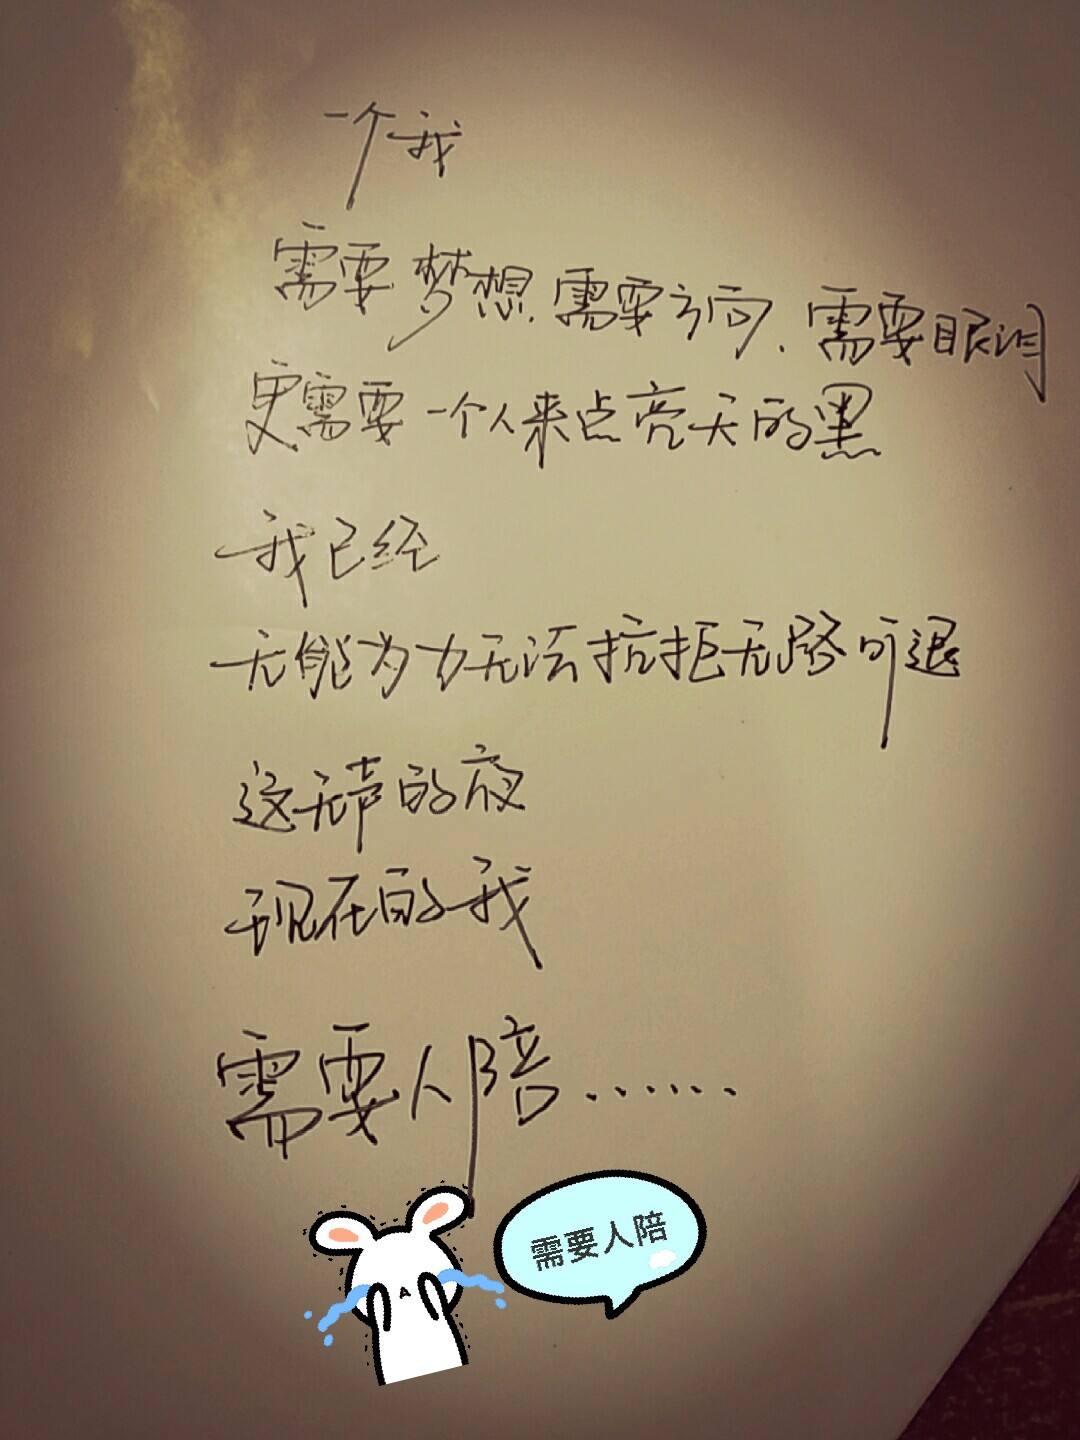 一个我
需要梦想.需要方向.需要眼泪
更需要一个人来点亮天的黑
我已经
无能为力无法抗拒无路可退
这无声的夜
现在的我
需要人陪......
需要人陪